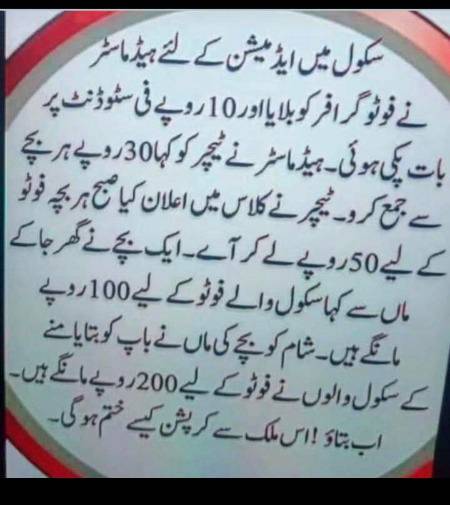 سکول میں ایڈمیشن کے لئے ہیڈ ماسٹر
نے فوٹو گرافر کو بلایا اور 10 روپے فی سٹوڈنٹ پر
بات پکی ہوئی۔ ہیڈ ماسٹر نے ٹیچر کو کہا 30 روپے ہر بچے
سے جمع کرو۔ ٹیچر نے کلاس میں اعلان کیا صبح ہر بچہ فوٹو
کے لیے 50 روپے لے کر آے۔ ایک بچے نے گھر جا کے
ماں سے کہا سکول والے فوٹو کے لیے 100 روپے
مانگے ہیں۔ شام کو بچے کی ماں نے باپ کو بتایا منے
کے سکول والوں نے فوٹو کے لیے 200 روپے مانگے ہیں۔
اب بتاؤ ! اس ملک سے کرپشن کیسے ختم ہو گی۔